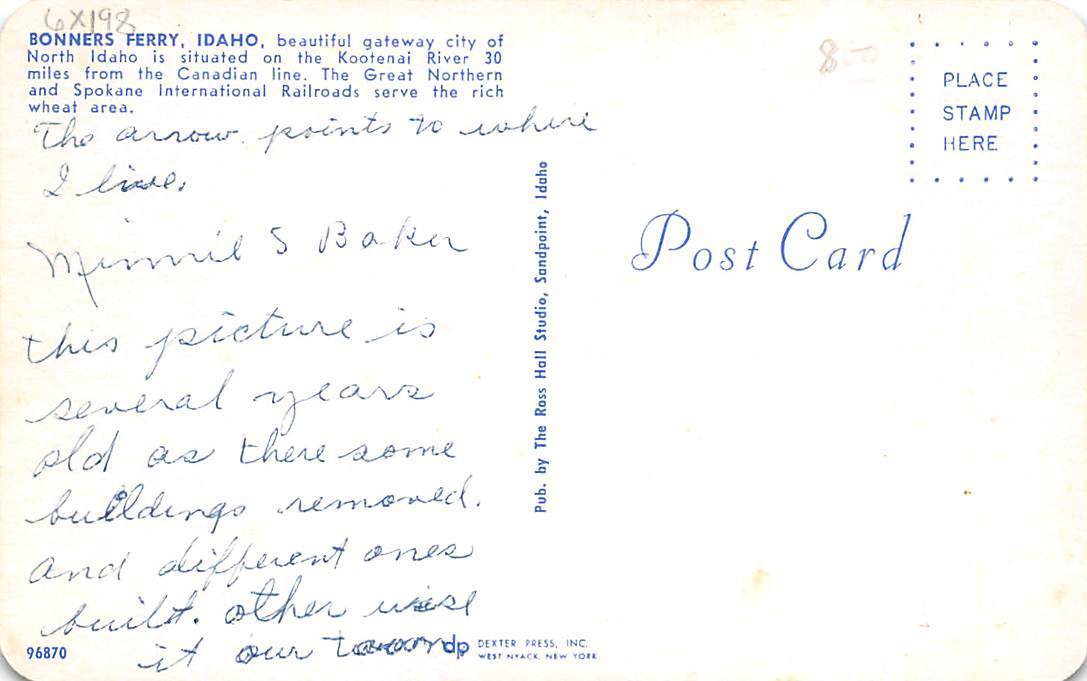 6X198
BONNERS FERRY, IDAHO, beautiful gateway city of
North Idaho is situated on the Kootenai River 30
miles from the Canadian line. The Great Northern
and Spokane International Railroads serve the rich
wheat area.
The arrow points to where
I live.
Minnie S Baker
this picture is
several years
old as there some
buildings removed.
and different ones
built. other wise
it our town
96870
dp DEXTER PRESS, INC.
WEST NYACK, NEW YORK
Pub. by The Ross Hall Studio, Sandpoint, Idaho
800
PLACE
STAMP
HERE
Post Card